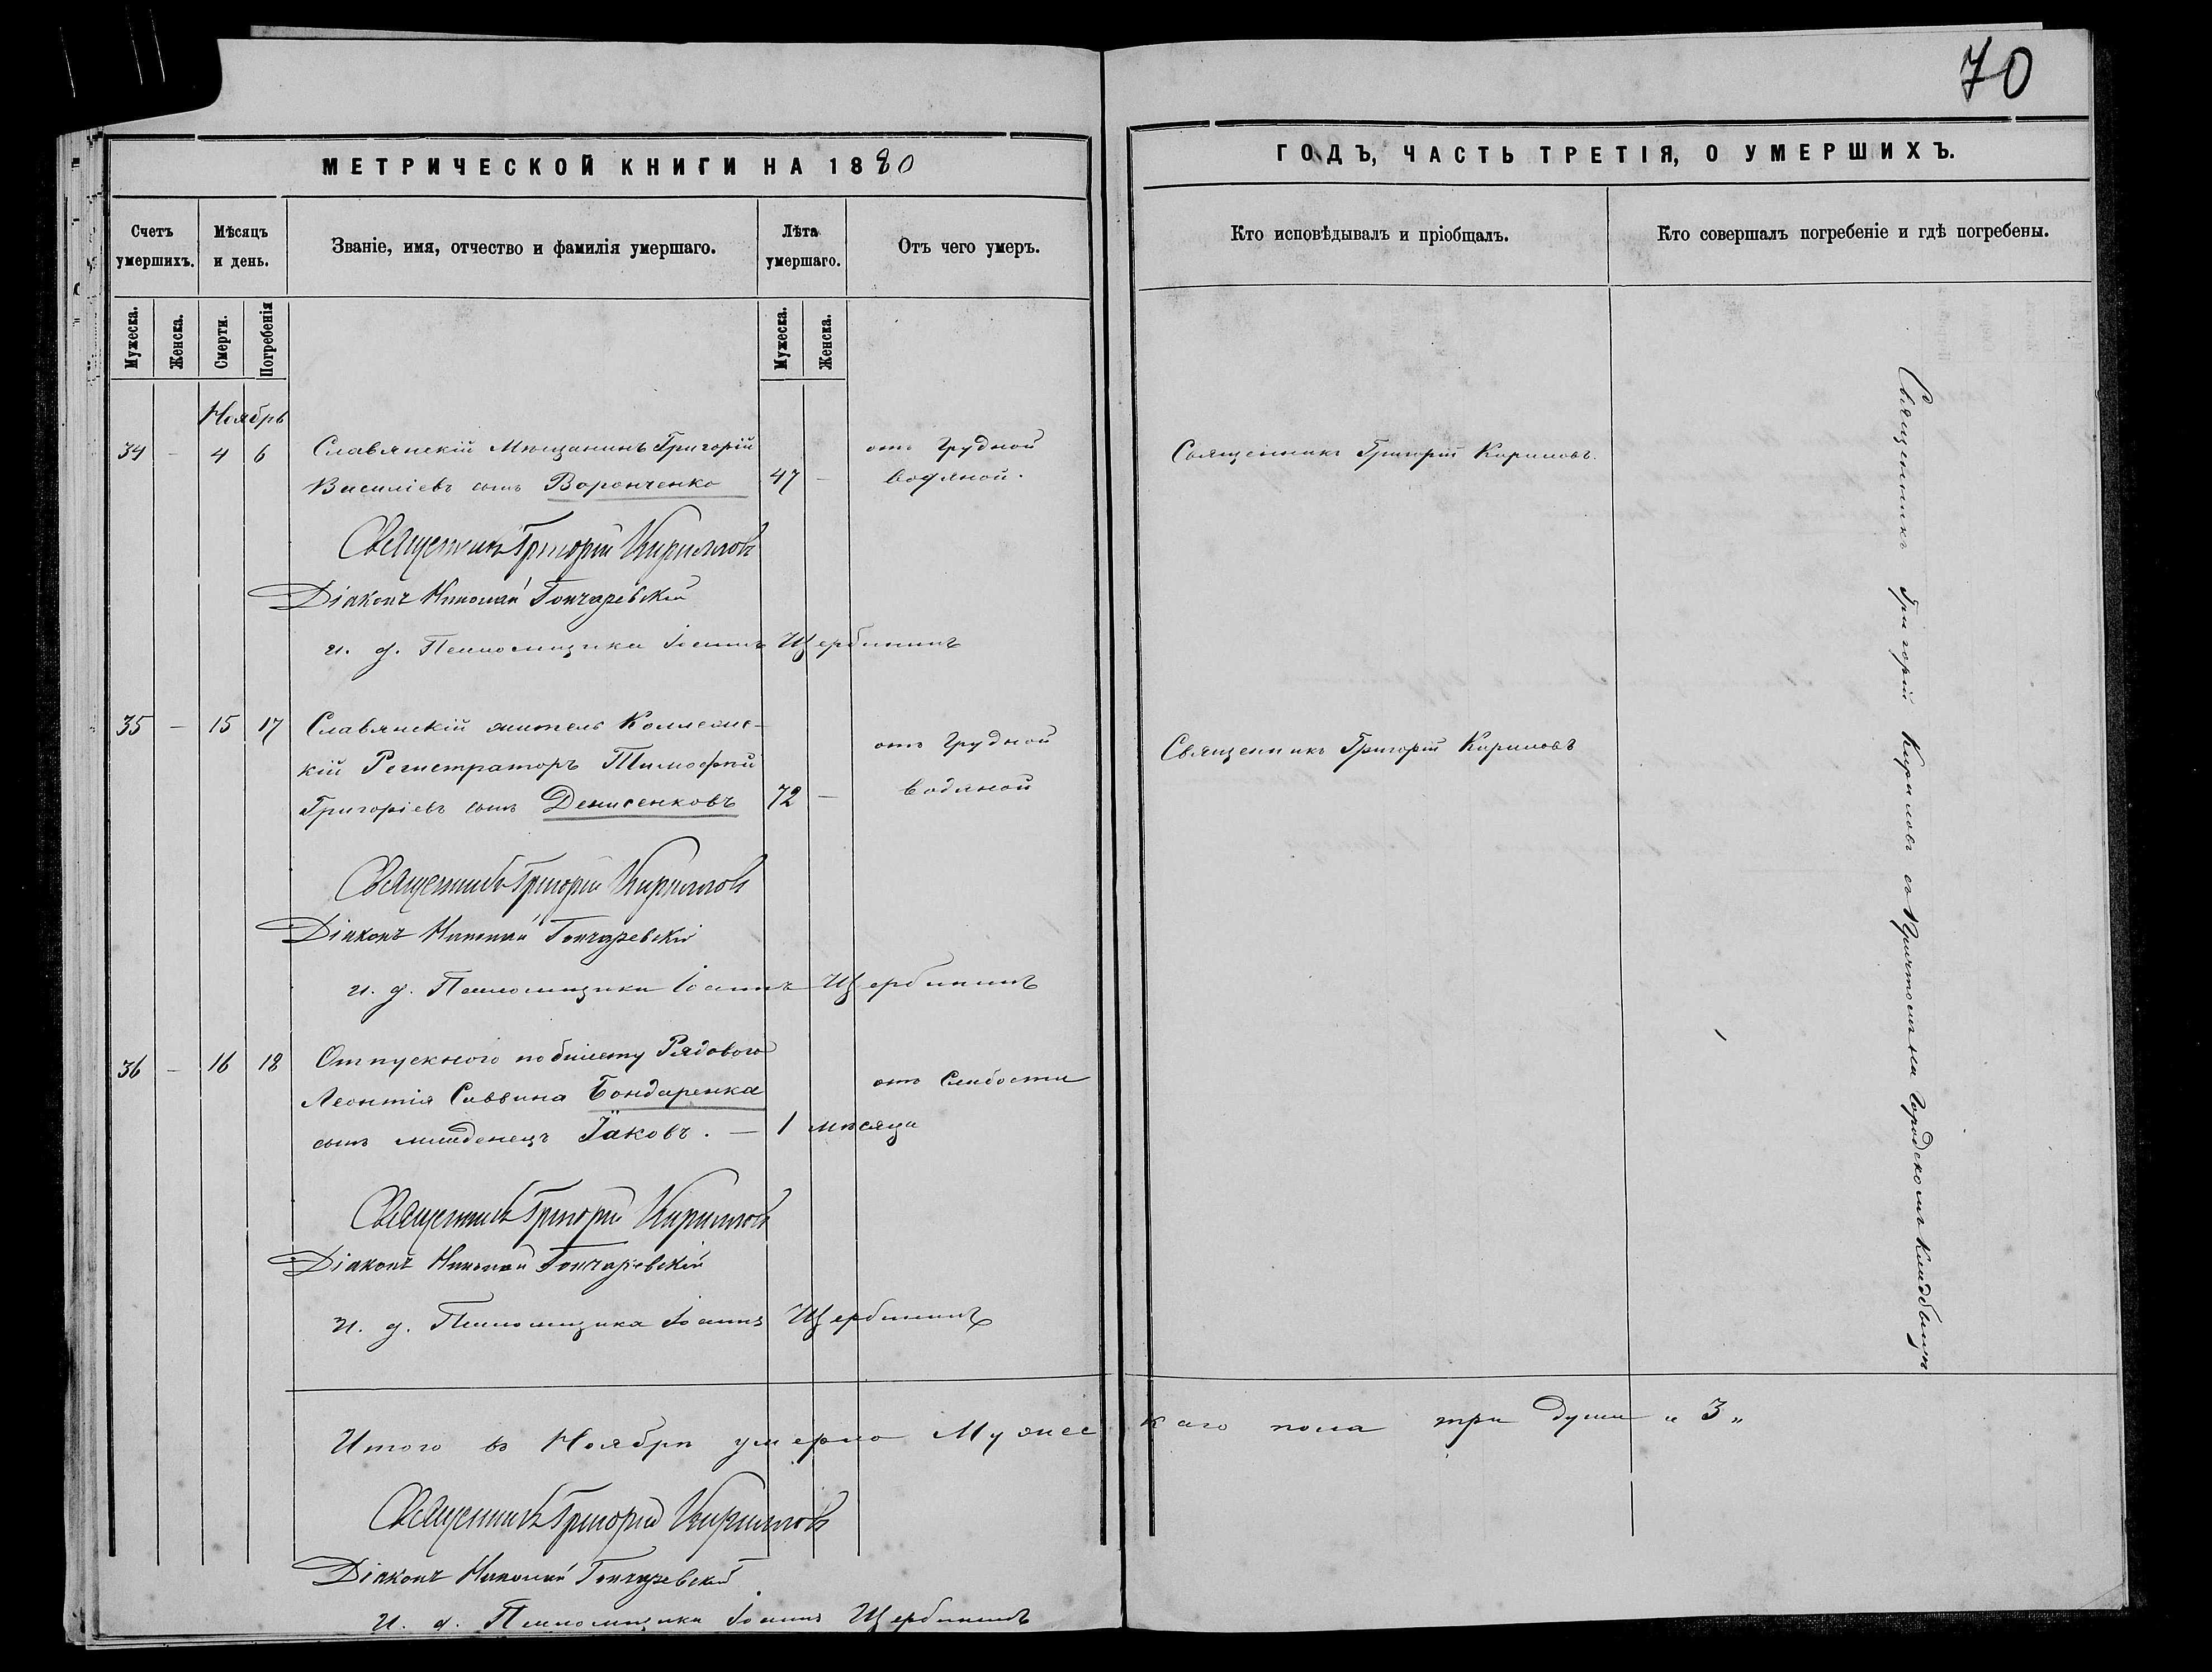 70
МЕТРИЧЕСКОЙ КНИГИ НА 1880
ГОДЪ, ЧАСТЬ ТРЕТІЯ, О УМЕРШИХЪ.
Счетъ умершихъ.
Мѣсяцъ и день.
Званіе, имя, отчество и фамилія умершаго.
Лѣта умершаго.
Отъ чего умеръ.
Кто исповѣдывалъ и пріобщалъ.
Кто совершалъ погребеніе и гдѣ погребены.
Мужеска.
Женска.
Смерти.
Погребенія
Мужеска.
Женска.
Ноябрь
34 - 4 6 Славянскій Мѣщанинъ Григорій
Василіевъ сынъ Воронченко 47 -
отъ Грудной
водяной.
Священникъ Григорій Кириловъ.
Священникъ Григорій Кирилловъ
Діаконъ Николай Гончаревскій
и. д. Псаломщика Іоаннъ Щербининъ
35 - 15 17 Славянскій житель Коллежс-
кій Регистраторъ Тимофѣй
Григоріевъ сынъ Денисенковъ 72 -
отъ Грудной
водяной
Священникъ Григорій Кириловъ
Священникъ Григорій Кирилловъ
Діаконъ Николай Гончаревскій
и. д. Псаломщика Іоаннъ Щербининъ
36 - 16 18 Отпускного по билету Рядового
Леонтія Саввина Бондаренка
сынъ младенецъ Іаковъ. - 1 мѣсяца
отъ Слабости
Священникъ Григорій Кирилловъ
Діаконъ Николай Гончаревскій
и. д. Псаломщика Іоаннъ Щербининъ
Священникъ Григорій Кириловъ съ Причтомъ на Городскомъ Кладбищѣ
Итого въ Ноябрѣ умерло Мужескаго пола три души „ 3 „
Священникъ Григорій Кирилловъ
Діаконъ Николай Гончаревскій
И. д. Псаломщика Іоаннъ Щербининъ